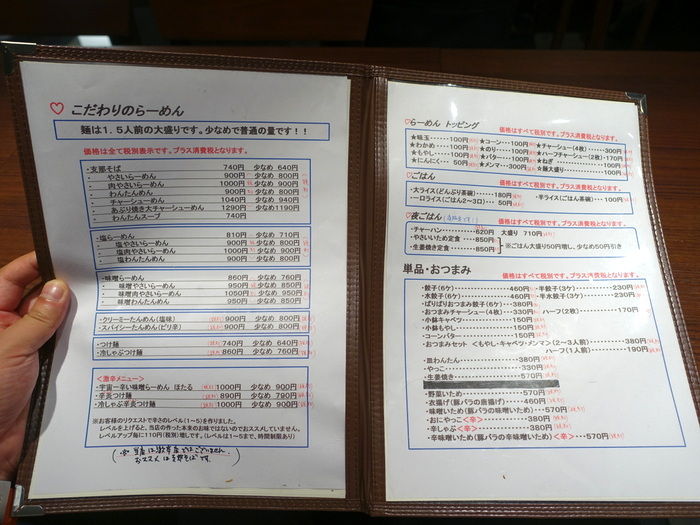 ♡ こだわりのらーめん
麺は1.5人前の大盛りです。少なめで普通の量です！！
価格は全て税別表示です。プラス消費税となります。
・支那そば 740円 少なめ 640円
・やさいらーめん 900円 少なめ 800円
・肉やさいらーめん 1000円 少なめ 900円
・わんたんめん 900円 少なめ 800円
・チャーシューめん 1040円 少なめ 940円
・あぶり焼き大チャーシューめん 1290円 少なめ1190円
・わんたんスープ 740円
・塩らーめん 810円 少なめ 710円
・塩やさいらーめん 900円 少なめ 800円
・塩肉やさいらーめん 1000円 少なめ 900円
・塩わんたんめん 900円 少なめ 800円
・味噌らーめん 860円 少なめ 760円
・味噌やさいらーめん 950円 少なめ 850円
・味噌肉やさいらーめん 1050円 少なめ 950円
・味噌わんたんめん 950円 少なめ 850円
・クリーミーたんめん(塩味) 900円 少なめ 800円
・スパイシーたんめん(ピリ辛) 900円 少なめ 800円
・つけ麺 740円 少なめ 640円
・冷しゃぶつけ麺 860円 少なめ 760円
＜激辛メニュー＞
・宇宙一辛い味噌らーめん ほたる 1000円 少なめ 900円
・辛長つけ麺 890円 少なめ 790円
・冷しゃぶ辛長つけ麺 1000円 少なめ 900円
※お客様のリクエストで辛さのレベル(1～5)を作りました。
レベルを上げると、当店の作った本来のお味ではないのでおススメしていません。
レベルアップ毎に110円(税別)増しです。(レベルは1～5まで、時間制限あり)
(※ 当店は激辛店ではございません。
おススメは支那そばです。)
♡らーめん トッピング
価格はすべて税別です。プラス消費税となります。
★味玉・・・・・100円 ★コーン・・・・100円 ★チャーシュー(4枚)・・・・300円
★わかめ・・・・100円 ★のり・・・・・100円 ★ハーフチャーシュー(2枚)・170円
★もやし・・・・100円 ★バター・・・・100円 ★ねぎ・・・・・100円
★にんにく・・・50円 ★メンマ・・・300円 ★麺大盛り・・・・・100円
♡ごはん
価格はすべて税別です。プラス消費税となります。
・大ライス(どんぶり茶碗)・・・・・180円 ・半ライス(ごはん茶碗)・・・・100円
・一口ライス(ごはん2～3口)・・・・50円
♡夜ごはん
価格はすべて税別です。プラス消費税となります。
・チャーハン・・・・・・・620円 大盛り 710円
・やさいいため定食・・・・850円
・生姜焼き定食・・・・・・850円
※ごはん大盛り50円増し、少なめ50円引き
単品・おつまみ
価格はすべて税別です。プラス消費税となります。
・餃子(6ケ)・・・・・・・460円 ・半餃子(3ケ)・・・・・・230円
・水餃子(6ケ)・・・・・・460円 ・半水餃子(3ケ)・・・・・230円
・ぱりぱりおつまみ餃子(6ケ)・・・・380円
・おつまみチャーシュー(4枚)・・・330円 ・ハーフ(2枚)・・・・・170円
・小鉢キャベツ・・・・・・150円
・小鉢もやし・・・・・・・150円
・コーンバター・・・・・・150円
・おつまみセット ＜もやし・キャベツ・メンマ(2～3人前)・・・・・380円
ハーフ(1人前)・・・・・190円
・皿わんたん・・・・・・・380円
・やっこ・・・・・・・・・330円
・生姜焼き・・・・・・・・570円
・野菜いため・・・・・・・570円
・衣揚げ(豚バラの唐揚げ)・・・・460円
・味噌いため(豚バラの味噌いため)・・・570円
・おにやっこ＜辛＞・・・・380円
・辛しゃぶ＜辛＞・・・・・380円
・辛味噌いため(豚バラの辛味噌いため)＜辛＞・・570円